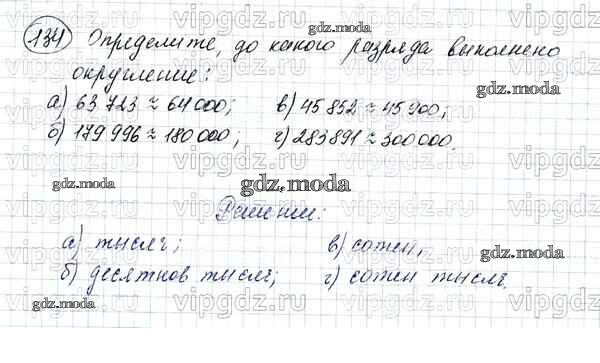 134 Определите, до какого разряда выполнено
округление:
а) 63 723 ≈ 64 000; в) 45 852 ≈ 45 900;
б) 179 996 ≈ 180 000; г) 283 891 ≈ 300 000.
gdz.moda
Решение:
а) тысяч; в) сотен;
б) десятков тысяч; г) сотен тысяч.